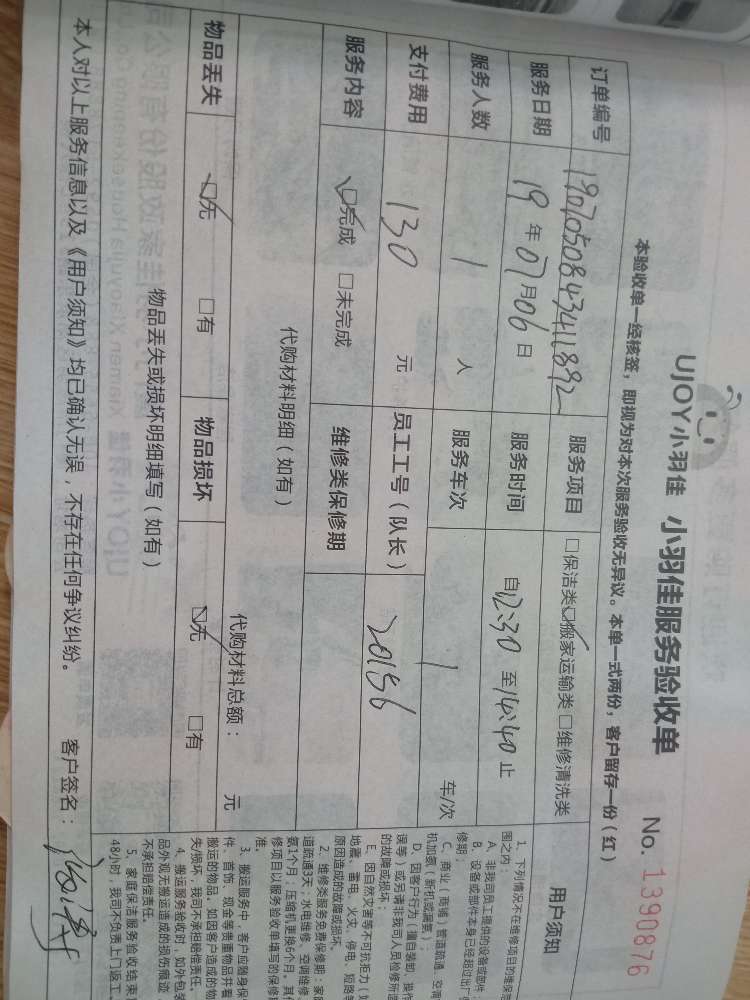 UJOY小羽佳 小羽佳服务验收单 No. 1390876
本验收单一经核签，即视为对本次服务验收无异议。本单一式两份，客户留存一份（红）
订单编号 190705084341892 服务项目 □保洁类 ☑搬家运输类 □维修清洗类
服务日期 19年07月06日 服务时间 自12:30至14:40止
服务人数 1 人 服务车次 1 车/次
支付费用 130 元 员工工号（队长） 20156
服务内容 ☑完成 □未完成 维修类保修期
代购材料明细（如有）
代购材料总额： 元
物品丢失 ☑无 □有 物品损坏 ☑无 □有
物品丢失或损坏明细填写（如有）
本人对以上服务信息以及《用户须知》均已确认无误，不存在任何争议纠纷。 客户签名：
用户须知
1、下列情况不在维修项目的维保范
围之内：
A、非我司员工提供的设备或部件
B、设备或部件本身已经超过出厂
修期；
C、商业（商铺）管道疏通、空调
机加氨（新机或漏氨）；
D、因客户行为（擅自装卸、操作
误等）或另请非我司人员检修所
的故障或损坏；
E、因自然灾害等不可抗拒力（如
地震、雷电、火灾、停电、短路等
原因造成的故障或损坏。
2、维修类服务免费保修期：家
道疏通3天；水电维修、空调维修
氨1个月；压缩机更换6个月，其
修项目以服务验收单填写的保修
准。
3、搬运服务中，客户应随身保
件、首饰、现金等贵重物品并看
搬运的物品，如因客户造成的物
失/损坏，我司不承担赔偿责任。
4、搬运服务验收时，如外包装
品外观无搬运造成的损伤痕迹
不承担赔偿责任。
5、家庭保洁服务验收结束
48小时，我司不负责上门返工。